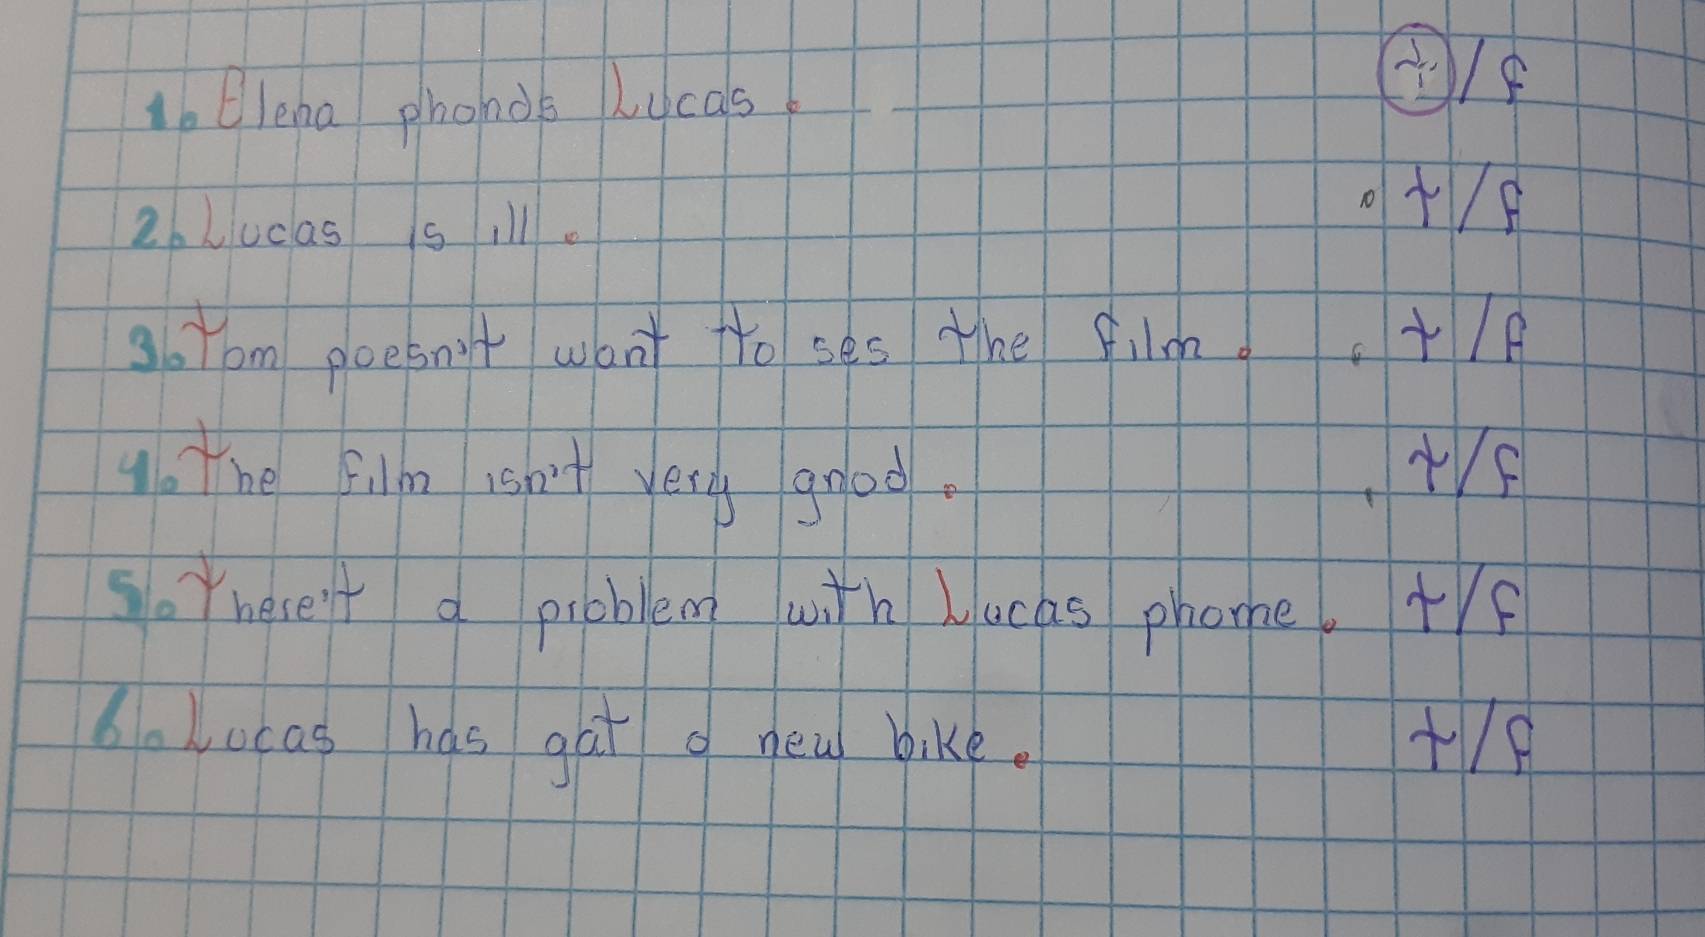 1. Elena phonds Lucas. t/f
2. Lucas is ill. t/f
3. Tom poesn't want to ses the film. t/f
4. The film isn't very gnod. t/f
5. There't a problem with Lucas phome. t/f
6. Lucas has gat a new bike. t/f